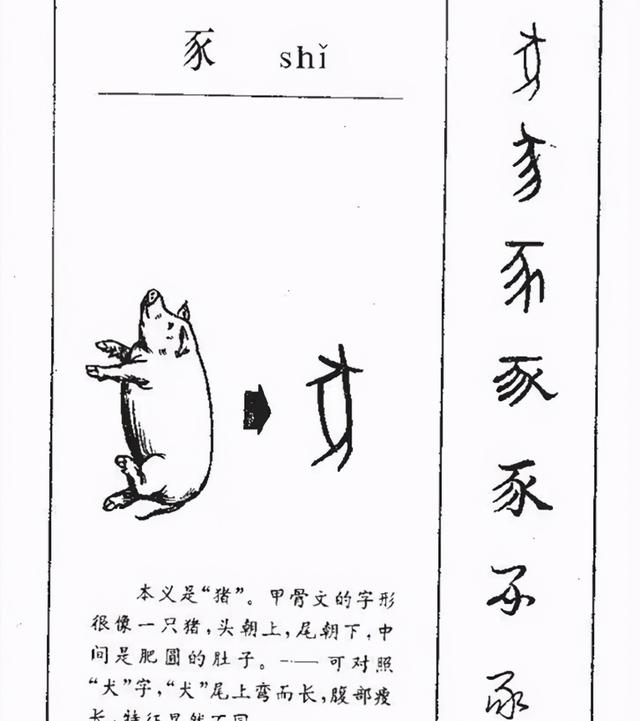 豕 shǐ
本义是“猪”。甲骨文的字形
很像一只猪,头朝上,尾朝下,中
间是肥圆的肚子。——可对照
“犬”字,“犬”尾上弯而长,腹部瘦
长,特征显然不同
豕
豕
豕